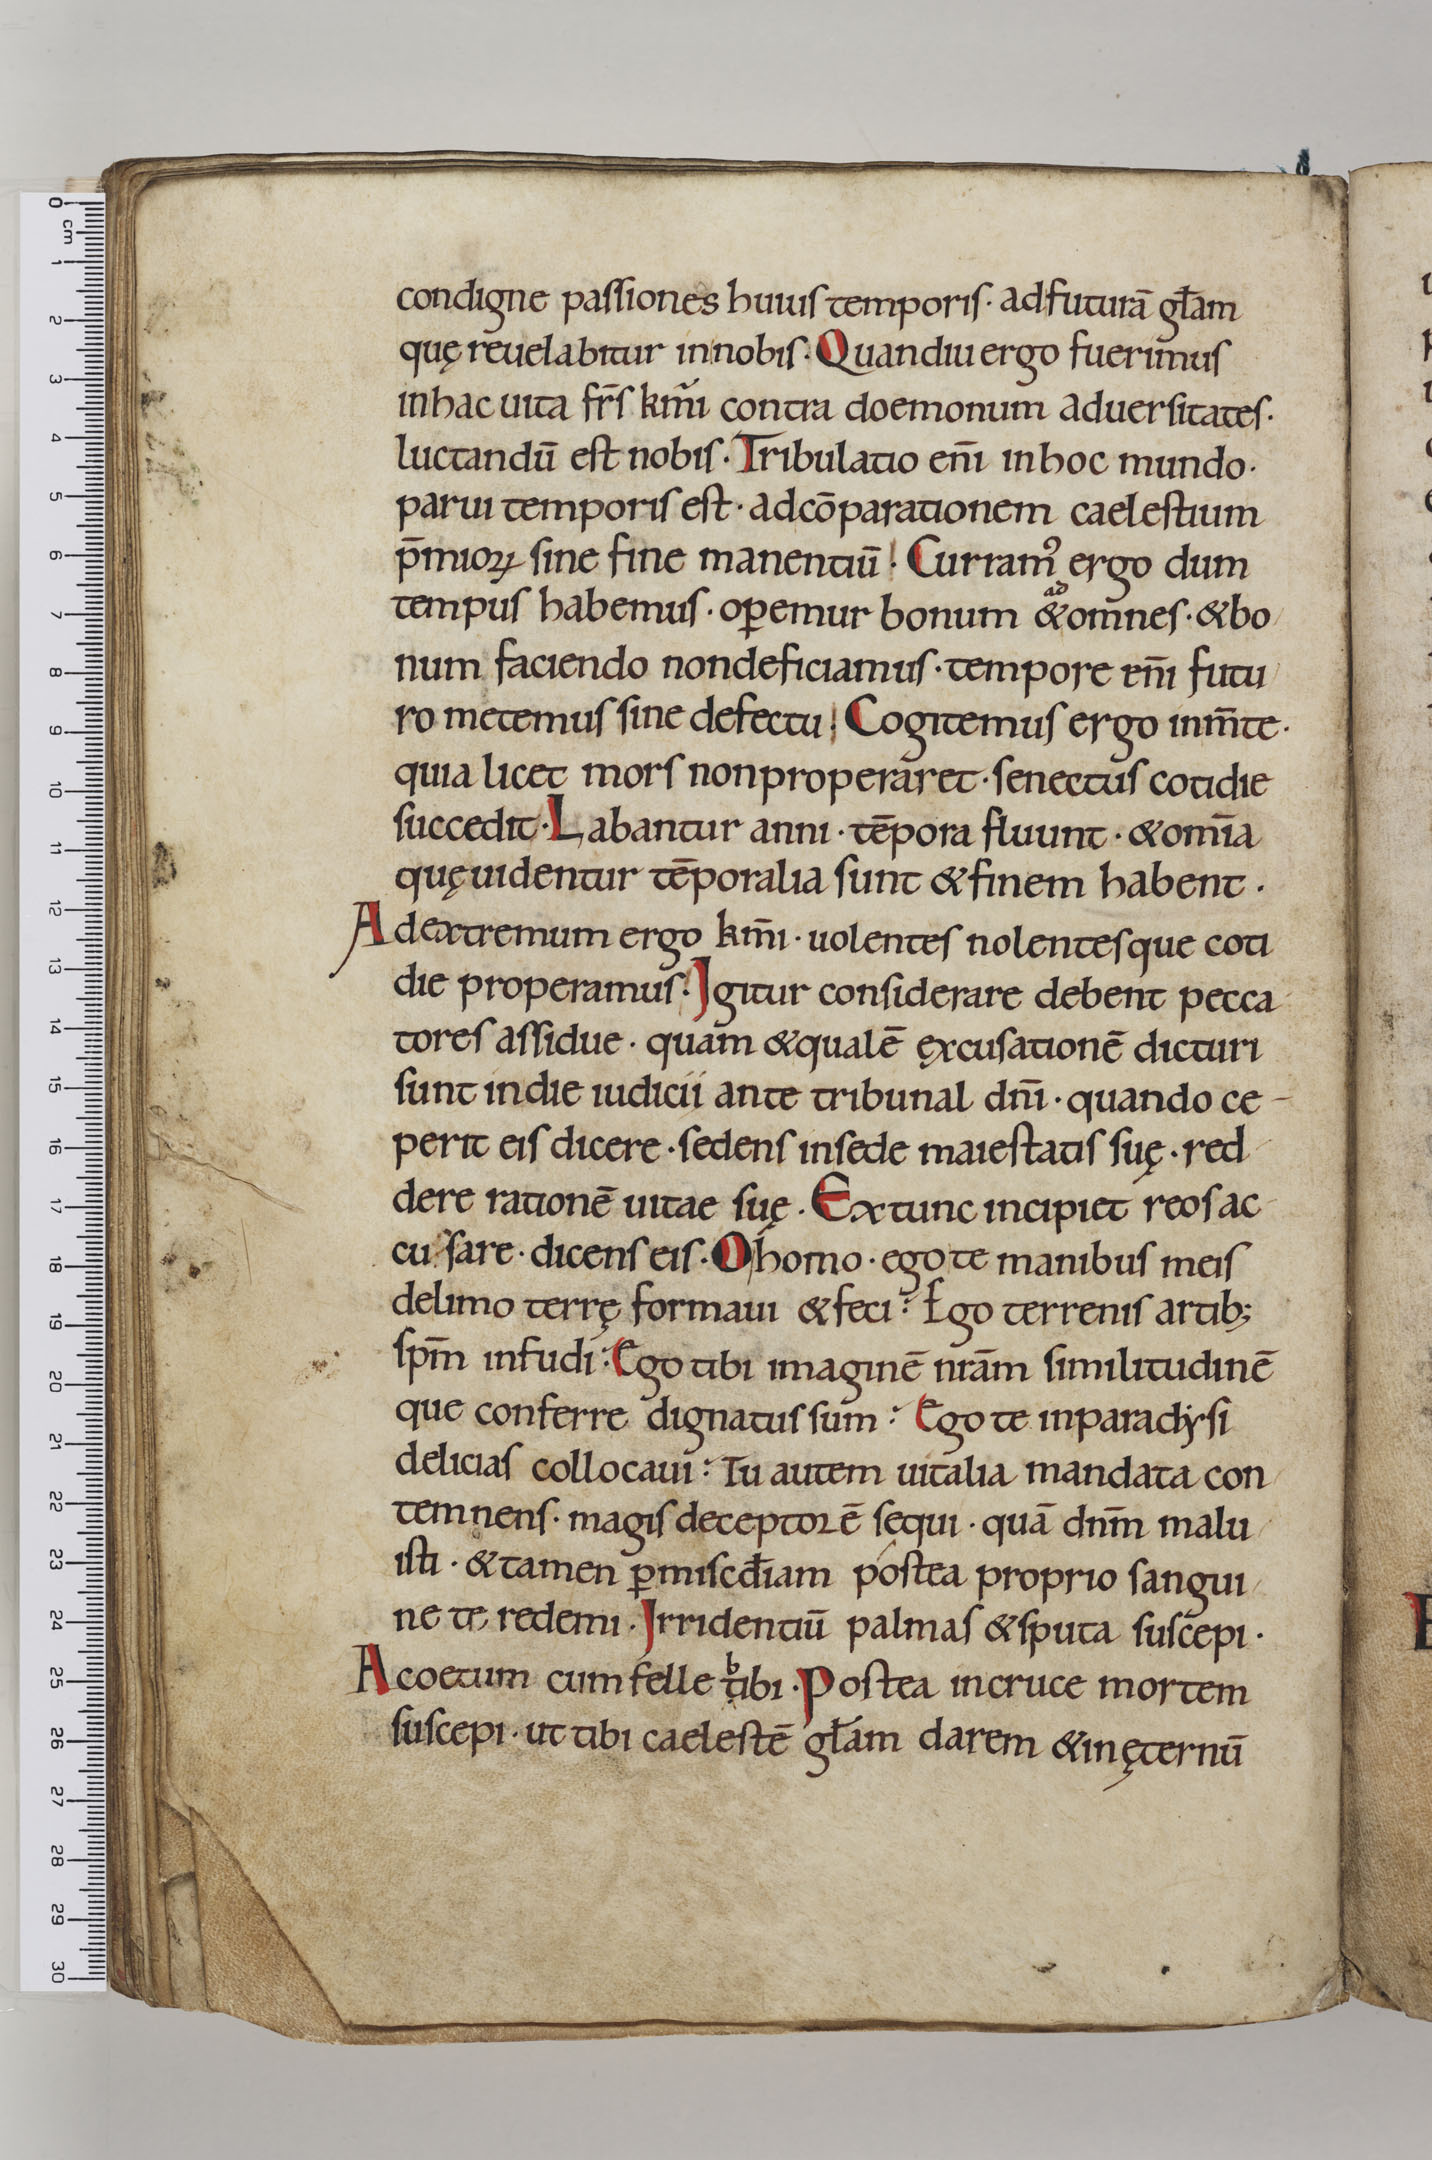 condigne passiones huius temporis· ad futurā gl̄am
quę reuelabitur in nobis· Quandiu ergo fuerimus
in hac uita fr̄s km̄i contra doemonum aduersitates·
luctandū est nobis· Tribulatio enī in hoc mundo·
parui temporis est· ad cōparationem caelestium
p̄mioꝝ sine fine manentiū! Curramꝰ ergo dum
tempus habemus· oꝑemur bonum &omnes· &bo
ad
num faciendo non deficiamus· tempore enī futu
ro metemus sine defectu! Cogitemus ergo in m̄te·
quia licet mors non properaret· senectus cotidie
succedit· Labantur anni· tēpora fluunt· &om̄ia
quę uidentur tēporalia sunt &finem habent·
Ad extremum ergo km̄i· uolentes nolentesque coti
die properamus· Igitur considerare debent pecca
tores assidue· quam &qualē ęxcusationē dicturi
sunt in die iudicii ante tribunal dn̄i· quando ce-
perit eis dicere· sedens in sede maiestatis suę· red
dere rationē uitae suę· Ex tunc incipiet reos ac
cusare· dicens eis· O homo· ego te manibus meis
de limo terrę formaui &feci: Ego terrenis artib;
sp̄m infudi: Ego tibi imaginē nr̄am similitudinē
que conferre dignatus sum: Ego te in paradẏsi
delicias collocaui: Tu autem uitalia mandata con
temnens· magis deceptorē sequi· quā dn̄m malu
isti· &tamen ꝑ miscd̄iam postea proprio sangui
ne te redemi· Irridentiū palmas &sputa suscepi·
Acoetum cum felle tibi· Postea in cruce mortem
b
suscepi· ut tibi caelestē gl̄am darem &in ęternū
0 cm 1 2 3 4 5 6 7 8 9 10 11 12 13 14 15 16 17 18 19 20 21 22 23 24 25 26 27 28 29 30